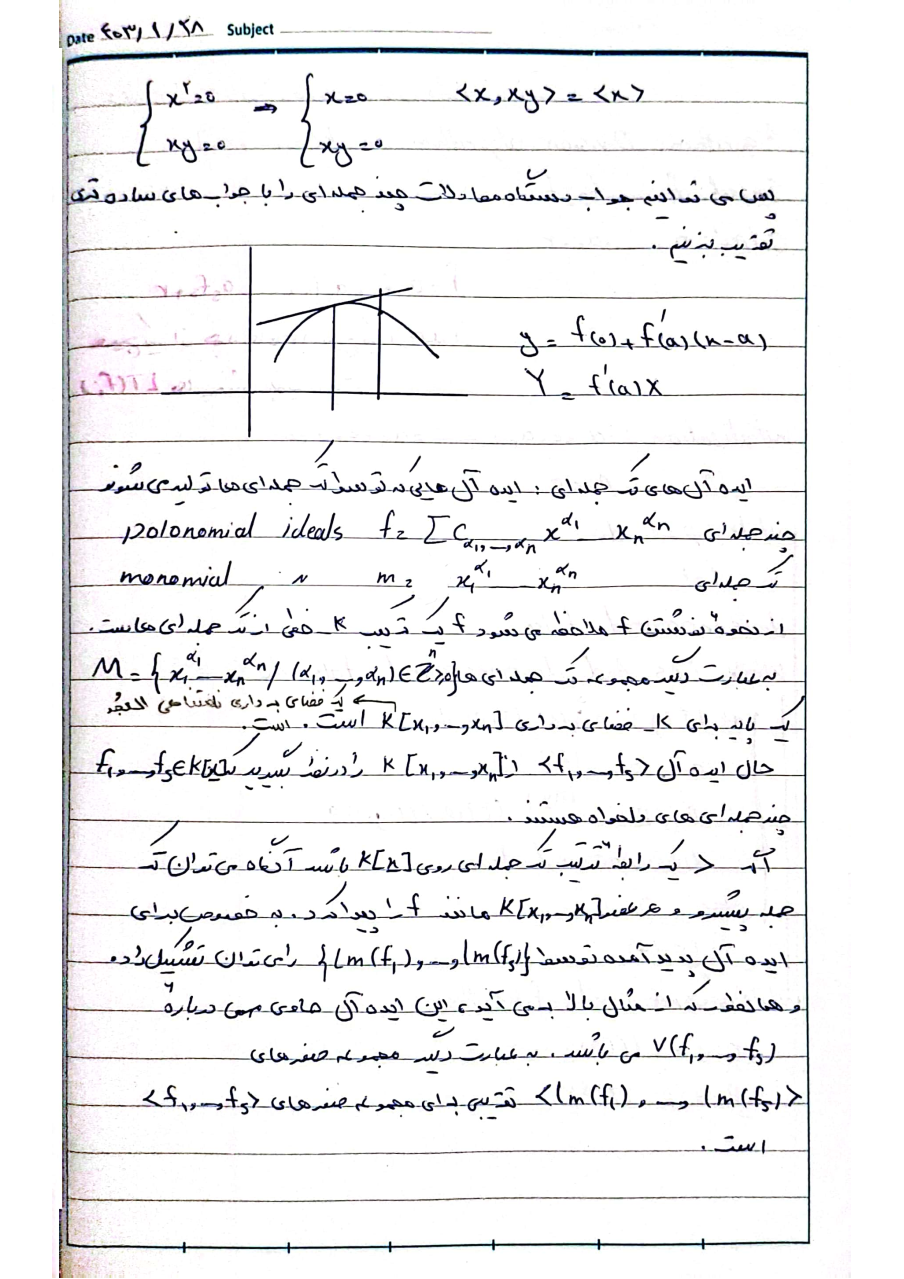 Date ۴۰۳/۱/۲۸ Subject
{ x²=0 → { x=0 <x, xy> = <x>
{ xy=0 { xy=0
پس می توانیم جواب دستگاه معادلات چند جمله ای را با جواب های ساده تری
تقریب بزنیم .
y = f(a) + f'(a)(x-a)
Y = f'(a)X
ایده آل های تک جمله ای : ایده آل هایی که توسط تک جمله ای ها تولید می شوند
چند جمله ای polonomial ideals f = Σ C_{α1,…,αn} x^{α1} … x_n^{αn}
تک جمله ای monomial " m = x_1^{α1} … x_n^{αn}
از نحوهٔ نوشتن f ملاحظه می شود f یک ترکیب K_ خطی از تک جمله ای هاست .
به عبارت دیگر مجموعه تک جمله ای ها M = { x_1^{α1} … x_n^{αn} / (α1,…,αn) ∈ Z^n_{≥0} }
یک فضای برداری نامتناهی البعد است .
یک پایه برای K_ فضای برداری K[x1,…,xn] است .
حال ایده آل <f1,…,fs> از K[x1,…,xn] را در نظر بگیرید که f1,…,fs ∈ K[x]
چند جمله ای های دلخواه هستند .
اگر < یک رابطهٔ ترتیب تک جمله ای روی K[x] باشد آنگاه می توان تک
جمله پیشرو هر عضو K[x1,…,xn] مانند f را پیدا کرد . به خصوص برای
ایده آل پدید آمده توسط {lm(f1),…,lm(fs)} را می توان تشکیل داد
و همانطور که از مثال بالا بر می آید ، این ایده آل حاوی مهمی دربارهٔ
V(f1,…,fs) می باشد . به عبارت دیگر مجموعه صفرهای
<lm(f1),…,lm(fs)> تقریبی برای مجموعه صفرهای <f1,…,fs>
است .